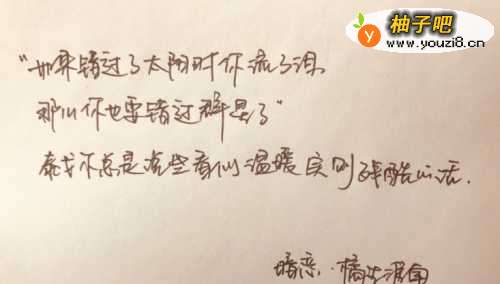 柚子吧
www.youzi8.cn
“如果错过了太阳时你流了泪
那么你也要错过群星了”
泰戈尔总是说些看似温暖实则残酷的话.
暗恋·橘生淮南